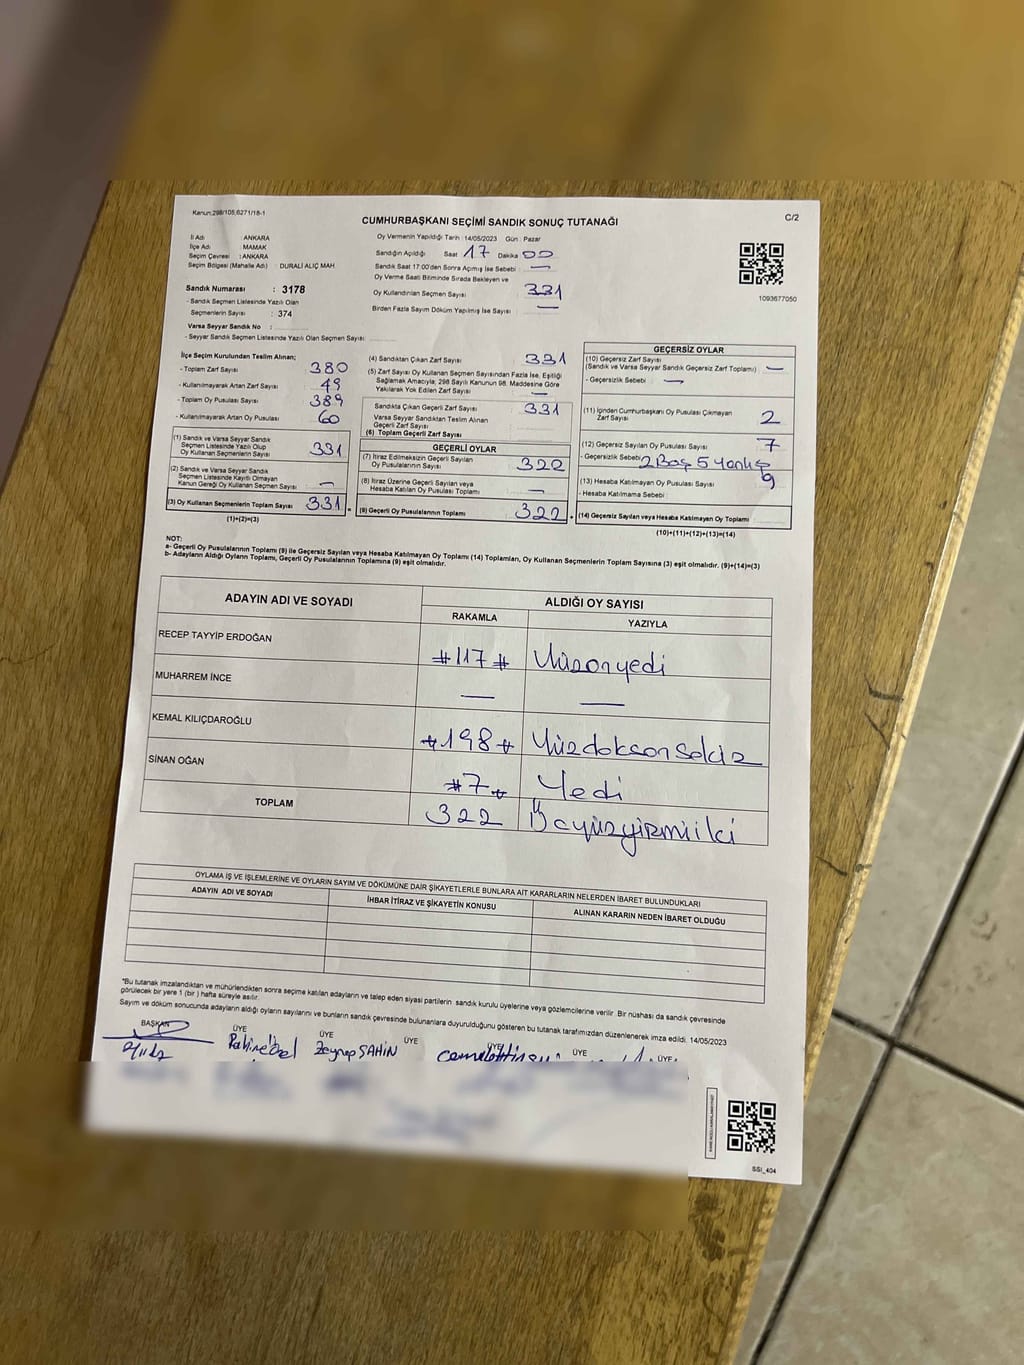 Kanun:298/105,6271/18-1
CUMHURBAŞKANI SEÇİMİ SANDIK SONUÇ TUTANAĞI
C/2
İl Adı : ANKARA
İlçe Adı : MAMAK
Seçim Çevresi : ANKARA
Seçim Bölgesi (Mahalle Adı) : DURALİ ALIÇ MAH.
Sandık Numarası : 3178
- Sandık Seçmen Listesinde Yazılı Olan
Seçmenlerin Sayısı : 374
Varsa Seyyar Sandık No :
- Seyyar Sandık Seçmen Listesinde Yazılı Olan Seçmen Sayısı
Oy Vermenin Yapıldığı Tarih : 14/05/2023 Gün : Pazar
Sandığın Açıldığı Saat 17 Dakika 00
Sandık Saat 17:00'den Sonra Açılmış İse Sebebi : —
Oy Verme Saati Bitiminde Sırada Bekleyen ve
Oy Kullandırılan Seçmen Sayısı 331
Birden Fazla Sayım Döküm Yapılmış İse Sayısı : —
1093677050
İlçe Seçim Kurulundan Teslim Alınan;
- Toplam Zarf Sayısı 380
- Kullanılmayarak Artan Zarf Sayısı 49
- Toplam Oy Pusulası Sayısı 389
- Kullanılmayarak Artan Oy Pusulası 60
(1) Sandık ve Varsa Seyyar Sandık
Seçmen Listesinde Yazılı Olup
Oy Kullanan Seçmenlerin Sayısı 331
(2) Sandık ve Varsa Seyyar Sandık
Seçmen Listesinde Kayıtlı Olmayan
Kanun Gereği Oy Kullanan Seçmen Sayısı —
(3) Oy Kullanan Seçmenlerin Toplam Sayısı 331 =
(1)+(2)=(3)
(4) Sandıktan Çıkan Zarf Sayısı 331
(5) Zarf Sayısı Oy Kullanan Seçmen Sayısından Fazla İse, Eşitliği
Sağlamak Amacıyla; 298 Sayılı Kanunun 98. Maddesine Göre
Yakılarak Yok Edilen Zarf Sayısı —
Sandıkta Çıkan Geçerli Zarf Sayısı 331
Varsa Seyyar Sandıktan Teslim Alınan
Geçerli Zarf Sayısı
(6) Toplam Geçerli Zarf Sayısı
GEÇERLİ OYLAR
(7) İtiraz Edilmeksizin Geçerli Sayılan
Oy Pusulalarının Sayısı 322
(8) İtiraz Üzerine Geçerli Sayılan veya
Hesaba Katılan Oy Pusulası Toplamı —
(9) Geçerli Oy Pusulalarının Toplamı 322 +
GEÇERSİZ OYLAR
(10) Geçersiz Zarf Sayısı
(Sandık ve Varsa Seyyar Sandık Geçersiz Zarf Toplamı) —
- Geçersizlik Sebebi : —
(11) İçinden Cumhurbaşkanı Oy Pusulası Çıkmayan
Zarf Sayısı 2
(12) Geçersiz Sayılan Oy Pusulası Sayısı 7
- Geçersizlik Sebebi 2 Boş 5 Yanlış
(13) Hesaba Katılmayan Oy Pusulası Sayısı 9
- Hesaba Katılmama Sebebi
(14) Geçersiz Sayılan veya Hesaba Katılmayan Oy Toplamı
(10)+(11)+(12)+(13)=(14)
NOT:
a- Geçerli Oy Pusulalarının Toplamı (9) ile Geçersiz Sayılan veya Hesaba Katılmayan Oy Toplamı (14) Toplamları, Oy Kullanan Seçmenlerin Toplam Sayısına (3) eşit olmalıdır. (9)+(14)=(3)
b- Adayların Aldığı Oyların Toplamı, Geçerli Oy Pusulalarının Toplamına (9) eşit olmalıdır.
ADAYIN ADI VE SOYADI
ALDIĞI OY SAYISI
RAKAMLA YAZIYLA
RECEP TAYYİP ERDOĞAN #117# Yüzonyedi
MUHARREM İNCE — —
KEMAL KILIÇDAROĞLU #198# Yüzdoksansekiz
SİNAN OĞAN #7# Yedi
TOPLAM 322 Üçyüzyirmiiki
OYLAMA İŞ VE İŞLEMLERİNE VE OYLARIN SAYIM VE DÖKÜMÜNE DAİR ŞİKAYETLERLE BUNLARA AİT KARARLARIN NELERDEN İBARET BULUNDUKLARI
ADAYIN ADI VE SOYADI İHBAR İTİRAZ VE ŞİKAYETİN KONUSU ALINAN KARARIN NEDEN İBARET OLDUĞU
*Bu tutanak imzalandıktan ve mühürlendikten sonra seçime katılan adayların ve talep eden siyasi partilerin sandık kurulu üyelerine veya gözlemcilerine verilir. Bir nüshası da sandık çevresinde
görülecek bir yere 1 (bir) hafta süreyle asılır.
Sayım ve döküm sonucunda adayların aldığı oyların sayılarını ve bunların sandık çevresinde bulunanlara duyurulduğunu gösteren bu tutanak tarafımızdan düzenlenerek imza edildi. 14/05/2023
BAŞKAN ÜYE ÜYE ÜYE ÜYE ÜYE ÜYE
Zeynep ŞAHİN
SSİ_404